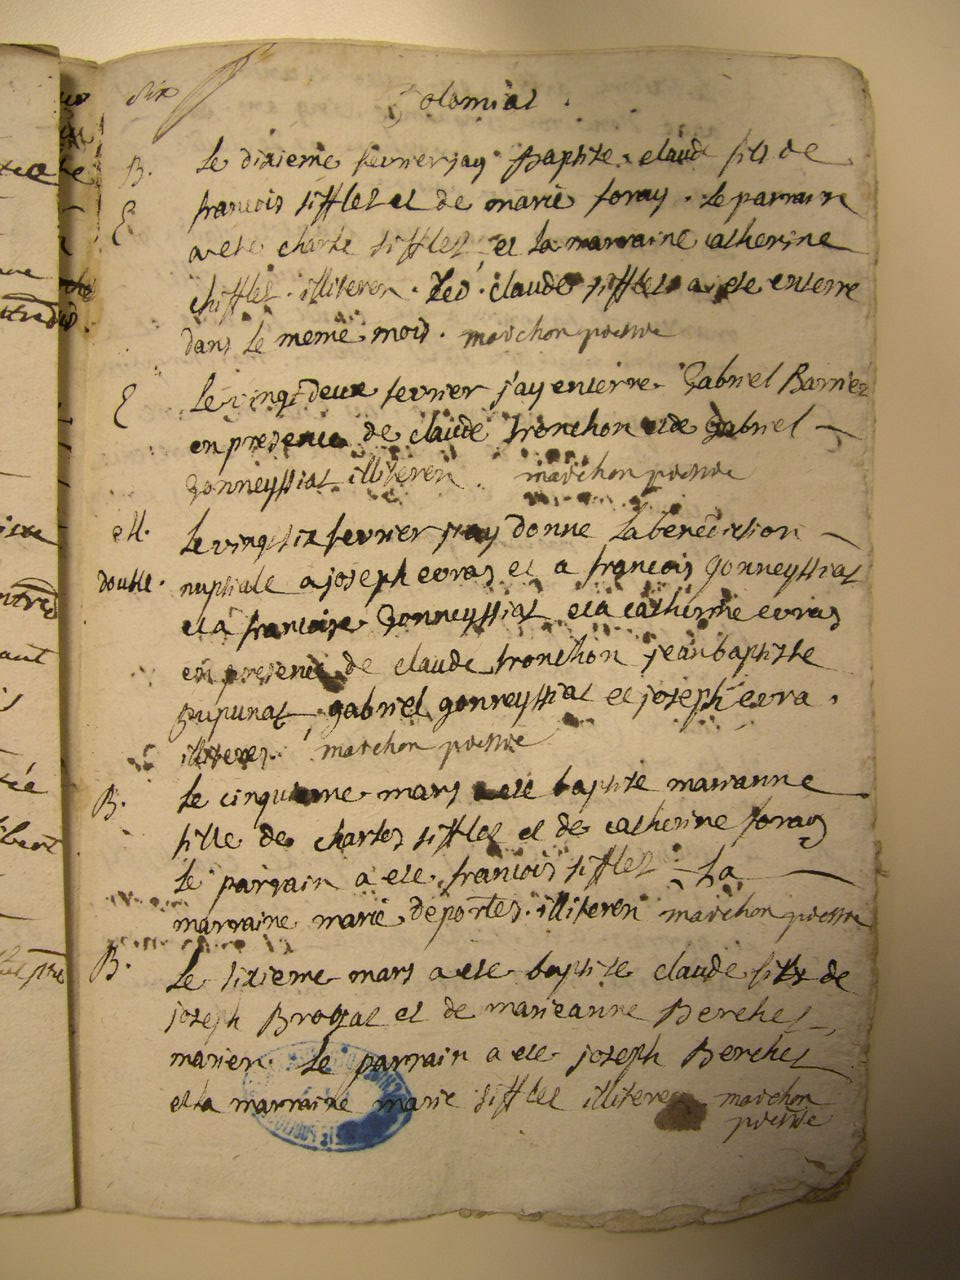 six
Colomiat.
B. Le dixieme fevrier j'ay Baptize claude fils de
E francois sifflet et de marie foray. Le parrain
a ete charle sifflet et la marraine catherine
chifflet. illiteren. Led. claude sifflet a ete enterre
dans le meme mois. marchon prestre
E Le vingt deux fevrier j'ay enterre Gabriel Barriez
en presence de claude tronchon et de gabriel
gonneyssiat illiteren. marchon prestre
M. Le vingt six fevrier j'ay donne la benediction
double. nuptiale a joseph evras et a francois gonneyssiat
et a francoise gonneyssiat et a catherine evras
en presence de claude tronchon jean baptiste
gabriel gonneyssiat et joseph evra.
illiteres. marchon prestre
B. Le cinquieme mars a ete baptize marianne
fille de charles sifflet et de catherine foray
le parrain a ete francois sifflet la
marraine marie deportes. illiteren marchon prestre
B. Le sixieme mars a ete baptize claude fils de
joseph Brogat et de marieanne Berchet
marien. Le parrain a ete joseph Berchet
et la marraine marie sifflet illiteren marchon
prestre